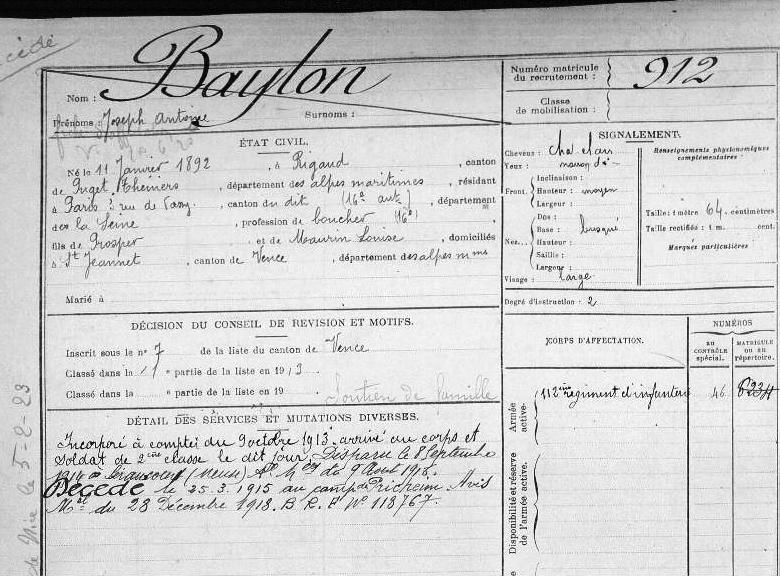 cédé
Baylon
Nom :
Prénoms : Joseph Antoine
Surnoms :
Numéro matricule du recrutement : 912
Classe de mobilisation :
ÉTAT CIVIL.
Né le 11 Janvier 1892, à Rigaud, canton
de Puget Theniers, département des alpes maritimes, résidant
à Paris rue de, canton du dit (16e), département
de la Seine, profession de boucher (16e),
fils de Prosper et de Maurin Louise, domiciliés
à St Jeannet, canton de Vence, département des alpes mmes
Marié à
SIGNALEMENT.
Cheveux : chatclair
Yeux : marron
Inclinaison :
Front. Hauteur : moyen
Largeur :
Dos :
Nez. Base : busqué
Hauteur :
Saillie :
Largeur :
Visage : large
Renseignements physionomiques complémentaires :
Taille : 1 mètre 64 centimètres
Taille rectifiée : 1 m. cent.
Marques particulières
Degré d'instruction : 2
DÉCISION DU CONSEIL DE REVISION ET MOTIFS.
Inscrit sous le no 7 de la liste du canton de Vence
Classé dans la 1e partie de la liste en 1913
Classé dans la e partie de la liste en 19
Soutien de famille
CORPS D'AFFECTATION.
NUMÉROS
AU CONTRÔLE spécial.
MATRICULE OU AU répertoire.
Armée active.
112ème régiment d'infanterie 46 6234
Disponibilité et réserve de l'armée active.
DÉTAIL DES SERVICES ET MUTATIONS DIVERSES.
Incorporé à compter du 9 octobre 1913. arrivé au corps et
soldat de 2ème classe le dit jour, Disparu le 8 Septembre
1914 à (Meuse) Av. Mel du 9 Avril 1915.
Décédé le 25.3.1915 au camp de Pricheim. Avis
Mel du 28 Décembre 1918. B.R.F No 118767.
le 5-2-23